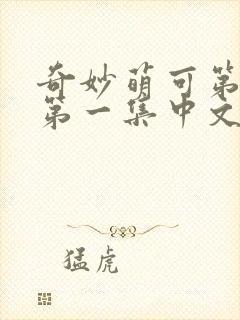 奇妙萌可第
第一集中文
猛虎